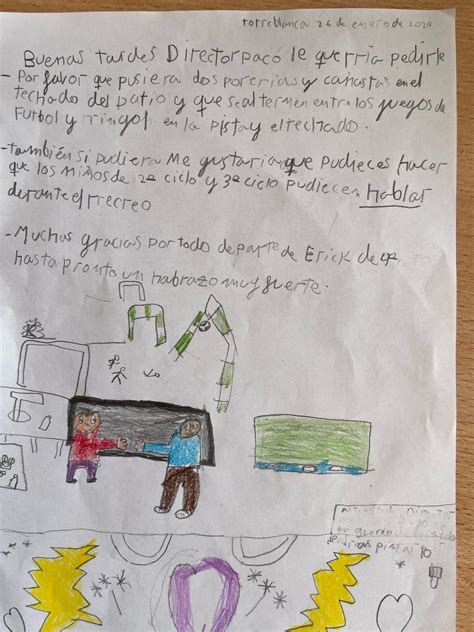 torreblanca 26 de enero de 2024
Buenas tardes Director paco le querria pedirle
- Por favor que pusiera dos porerias y canastas en el
techado del patio y que se altermen entre los juegos de
Futbol y ringol en la pista y el techado.
- también si pudiera Me gustaria que pudieces hacer
que los niños de 2º ciclo y 3º ciclo pudiecen Hablar
durante el rrecreo
- Muchas gracias por todo de parte de Erick de
hasta pronto un habrazo muy fuerte.